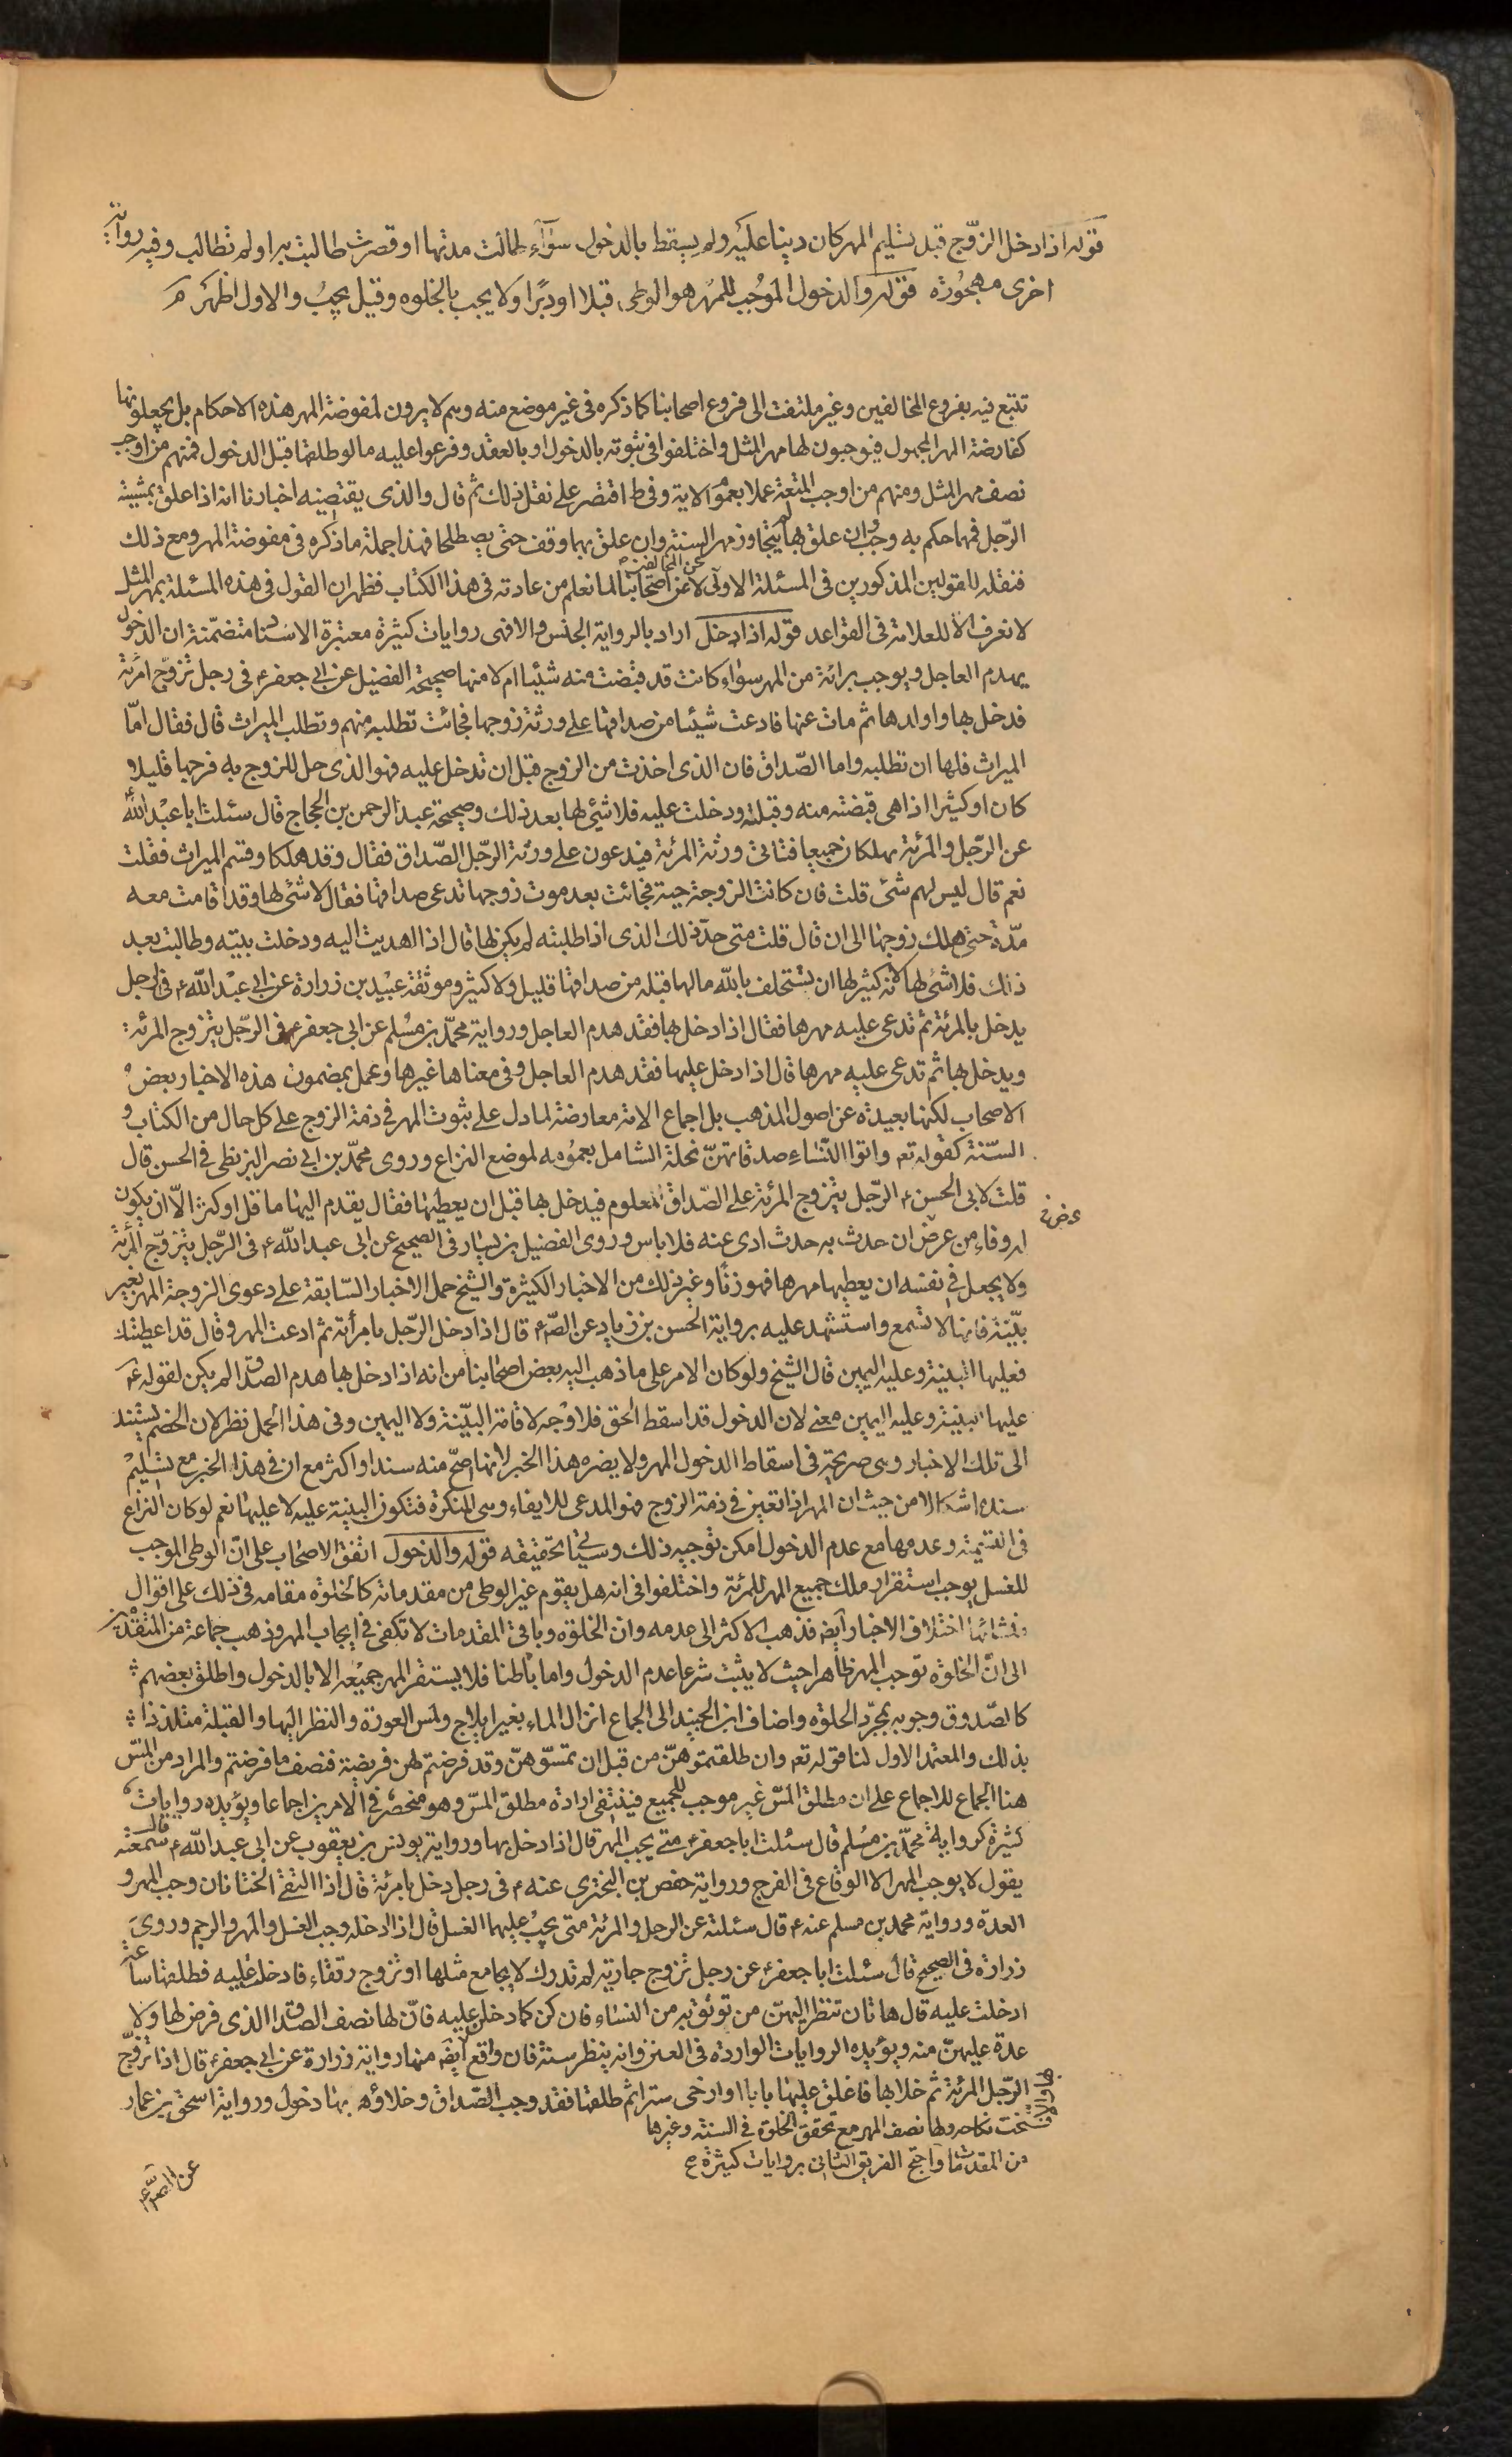 قوله اذا دخل الزوّج قبل تسليم المهر كان دينا عليه ولم يسقط بالدخول سوآء طالت مدتها او قصرت طالبت به او لم تطالب وفيه رواية
اخرى مهجورة قوله والدخول الموجب للمهر هو الوطى قبلا او دبرا ولا يجب بالخلوه وقيل يجب والاول اظهر
تتبع فيه بفروع المخالفين وغير ملتفت الى فروع اصحابنا كما ذكره فى غير موضع منه وهم لا يرون لمفوضة المهر هذه الاحكام بل يجعلونها
كفارضة المهر المجهول فيوجبون لها مهر المثل واختلفوا فى ثبوته بالدخول او بالعقد وفرعوا عليه ما لو طلقها قبل الدخول فمنهم من اوجب
نصف مهر المثل ومنهم من اوجب المتعة عملا بعموم الاية وفى ط اقتصر على نقل ذلك ثم قال والذى يقتضيه اخبارنا انه اذا علق بمشية
الرّجل فمهما حكم به وجب وان علق بها لم يتجاوز مهر السنة وان علق بهما وقف حتى يصطلحا فهذا جملة ما ذكره فى مفوضة المهر ومع ذلك
فنقله للقولين المذكورين فى المسئلة الاولى لا عن اصحابنا لما نعلم من عادته فى هذا الكتاب فظهر ان القول فى هذه المسئلة بمهر المثل
عن المخالفين
لا نعرف الا للعلامة فى القواعد قوله اذا دخل اراد بالرواية الجنس والا فهى روايات كثيرة معتبرة الاسناد متضمّنة ان الدخول
يهدم العاجل ويوجب برائة من المهر سوآء كانت قد قبضت منه شيئا ام لا منها صحيحة الفضيل عن ابى جعفر ع فى رجل تزوّج امرئة
فدخل بها واولدها ثم مات عنها فادعت شيئا من صداقها على ورثة زوجها فجائت تطلبه منهم وتطلب الميراث قال فقال امّا
الميراث فلها ان تطلبه واما الصّداق فان الذى اخذت من الزوج قبل ان تدخل عليه فهو الذى حل للزوج به فرجها قليلا
كان او كثيرا اذا هى قبضته منه وقبلته ودخلت عليه فلا شئ لها بعد ذلك وصحيحة عبد الرحمن بن الحجاج قال سئلت ابا عبد الله ع
عن الرّجل والمرئة يهلكان جميعا فتاتى ورثة المرئة فيدعون على ورثة الرّجل الصّداق فقال وقد هلكا وقسم الميراث فقلت
نعم قال ليس لهم شئ قلت فان كانت الزوجة حية فجائت بعد موت زوجها تدعى صداقها فقال لا شئ لها وقد اقامت معه
مدّة حتى هلك زوجها الى ان قال قلت متى حدّ ذلك الذى اذا طلبته لم يكن لها قال اذا اهديت اليه ودخلت بيته وطالبت بعد
ذلك فلا شئ لها انه كثير لها ان تستحلف بالله ما لها قبله من صداقها قليل ولا كثير وموثقة عبيد بن زرارة عن ابى عبد الله ع فى الرجل
يدخل بالمرئة ثم تدعى عليه مهرها فقال اذا دخل بها فقد هدم العاجل ورواية محمّد بن مسلم عن ابى جعفر ع فى الرّجل يتزوج المرئة
ويدخل بها ثم تدعى عليه مهرها قال اذا دخل عليها فقد هدم العاجل وفى معناها غيرها وعمل بمضمون هذه الاخبار بعض
الاصحاب لكنها بعيدة عن اصول المذهب بل اجماع الامة معارضة لما دل على ثبوت المهر فى ذمة الزوج على كل حال من الكتاب و
السّنة كقوله تعه واتوا النّساء صدقاتهنّ نحلة الشامل بعمومه لموضع النزاع وروى محمّد بن ابى نصر البزنطى فى الحسن قال
قلت لابى الحسن ع الرّجل يتزوج المرئة على الصّداق المعلوم فيدخل بها قبل ان يعطيها فقال يقدم اليها ما قل او كثر الّا ان يكون
له وفاء من عرض ان حدث به حدث ادى عنه فلا باس وروى الفضيل بن يسار فى الصحيح عن ابى عبد الله ع فى الرّجل يتزوّج المرئة
عرض
ولا يجعل فى نفسه ان يعطيها مهرها فهو زنا وغير ذلك من الاخبار الكثيرة والشيخ حمل الاخبار السّابقة على دعوى الزوجة المهر بغير
بيّنة فانها لا تسمع واستشهد عليه برواية الحسن بن زياد عن الصّ ع قال اذا دخل الرّجل بامرأته ثم ادعت المهر وقال قد اعطيتك
فعليها البينة وعليه اليمين قال الشيخ ولو كان الامر على ما ذهب اليه بعض اصحابنا من انه اذا دخل بها هدم الصداق لم يكن لقوله ع
عليها البينة وعليه اليمين معنى لان الدخول قد اسقط الحق فلا وجه لاقامة البيّنة ولا اليمين وفى هذا الحمل نظر لان الخصم يستند
الى تلك الاخبار وهى صريحة فى اسقاط الدخول المهر ولا يضره هذا الخبر لانها اصحّ منه سندا واكثر مع ان فى هذا الخبر مع تسليم
سنده اشكالا من حيث ان المهر اذا تعين فى ذمة الزوج فهو المدعى للايفاء وهى المنكرة فتكون البينة عليه لا عليها نعم لو كان النزاع
فى التسمية وعدمها مع عدم الدخول امكن توجيه ذلك وسياتى تحقيقه قوله والدخول اتفق الاصحاب على انّ الوطى الموجب
للغسل يوجب استقرار ملك جميع المهر للمرئة واختلفوا فى انه هل يقوم غير الوطى من مقدماته كالخلوة مقامه فى ذلك على اقوال
منشائها اختلاف الاخبار ايضه فذهب الاكثر الى عدمه وان الخلوة وباقى المقدمات لا تكفى فى ايجاب المهر وذهب جماعة من المتقدمين
الى انّ الخلوة توجب المهر ظاهرا حيث لا يثبت شرعا عدم الدخول واما باطنا فلا يستقر المهر جميعه الا بالدخول واطلق بعضهم
كالصّدوق وجوبه بمجرّد الخلوه واضاف ابن الجنيد الى الجماع انزال الماء بغير ايلاج ولمس العورة والنظر اليها والقبلة متلذذا
بذلك والمعتمد الاول لنا قوله تعه وان طلقتموهنّ من قبل ان تمسّوهنّ وقد فرضتم لهن فريضة فنصف ما فرضتم والمراد من المسّ
هنا الجماع للاجماع على ان مطلق المسّ غير موجب للجميع فينتفى ارادة مطلق المسّ وهو منحصر فى الامرين اجماعا ويؤيده روايات
كثيرة كرواية محمّد بن مسلم قال سئلت ابا جعفر ع متى يجب المهر قال اذا دخل بها ورواية يونس بن يعقوب عن ابى عبد الله ع قال سمعته
يقول لا يوجب المهر الا الوقاع فى الفرج ورواية حفص بن البخترى عنه ع فى رجل دخل بامرئة قال اذا التقى الختانان وجب المهر و
العدة ورواية محمد بن مسلم عنه ع قال سئلته عن الرجل والمرئة متى يجب عليهما الغسل قال اذا ادخله وجب الغسل والمهر والرجم وروى
زرارة فى الصحيح قال سئلت ابا جعفر ع عن رجل تزوج جارية لم تدرك لا يجامع مثلها او تزوج رتقاء فادخلت عليه فطلقها ساعة
ادخلت عليه قال هاتان تنظر اليهنّ من توثق به من النساء فان كن كما دخلن عليه فانّ لها نصف الصداق الذى فرض لها ولا
عدة عليهنّ منه ويؤيده الروايات الواردة فى العنن وانه ينظر سنة فان واقع ايضه منها رواية زرارة عن ابى جعفر ع قال اذا تزوج
الرّجل المرئة ثم خلا بها فاغلق عليها بابا او ارخى سترا ثم طلقها فقد وجب الصّداق وخلاؤه بها دخول ورواية اسحق بن عمار
فسخت نكاحه ولها نصف المهر مع تحقق الخلوة فى السنة وغيرها
من المقدمات واحتج الفريق الثانى بروايات كثيرة
عن الصّ ع